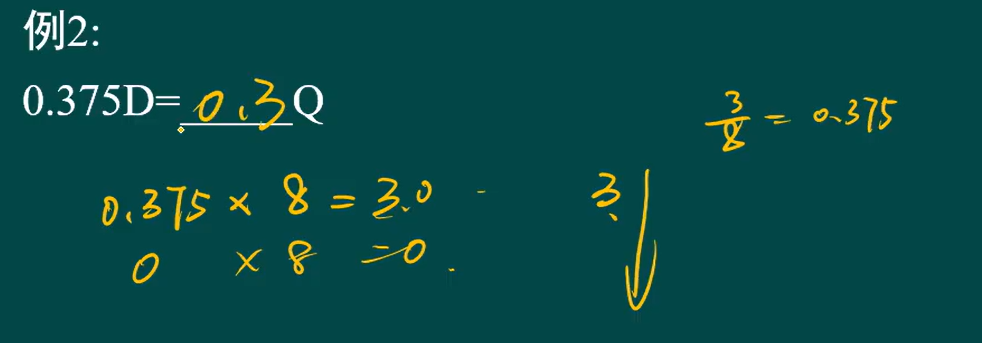 例2:
0.375D=0.3Q
3/8 = 0.375
0.375 × 8 = 3.0
3
0 × 8 = 0